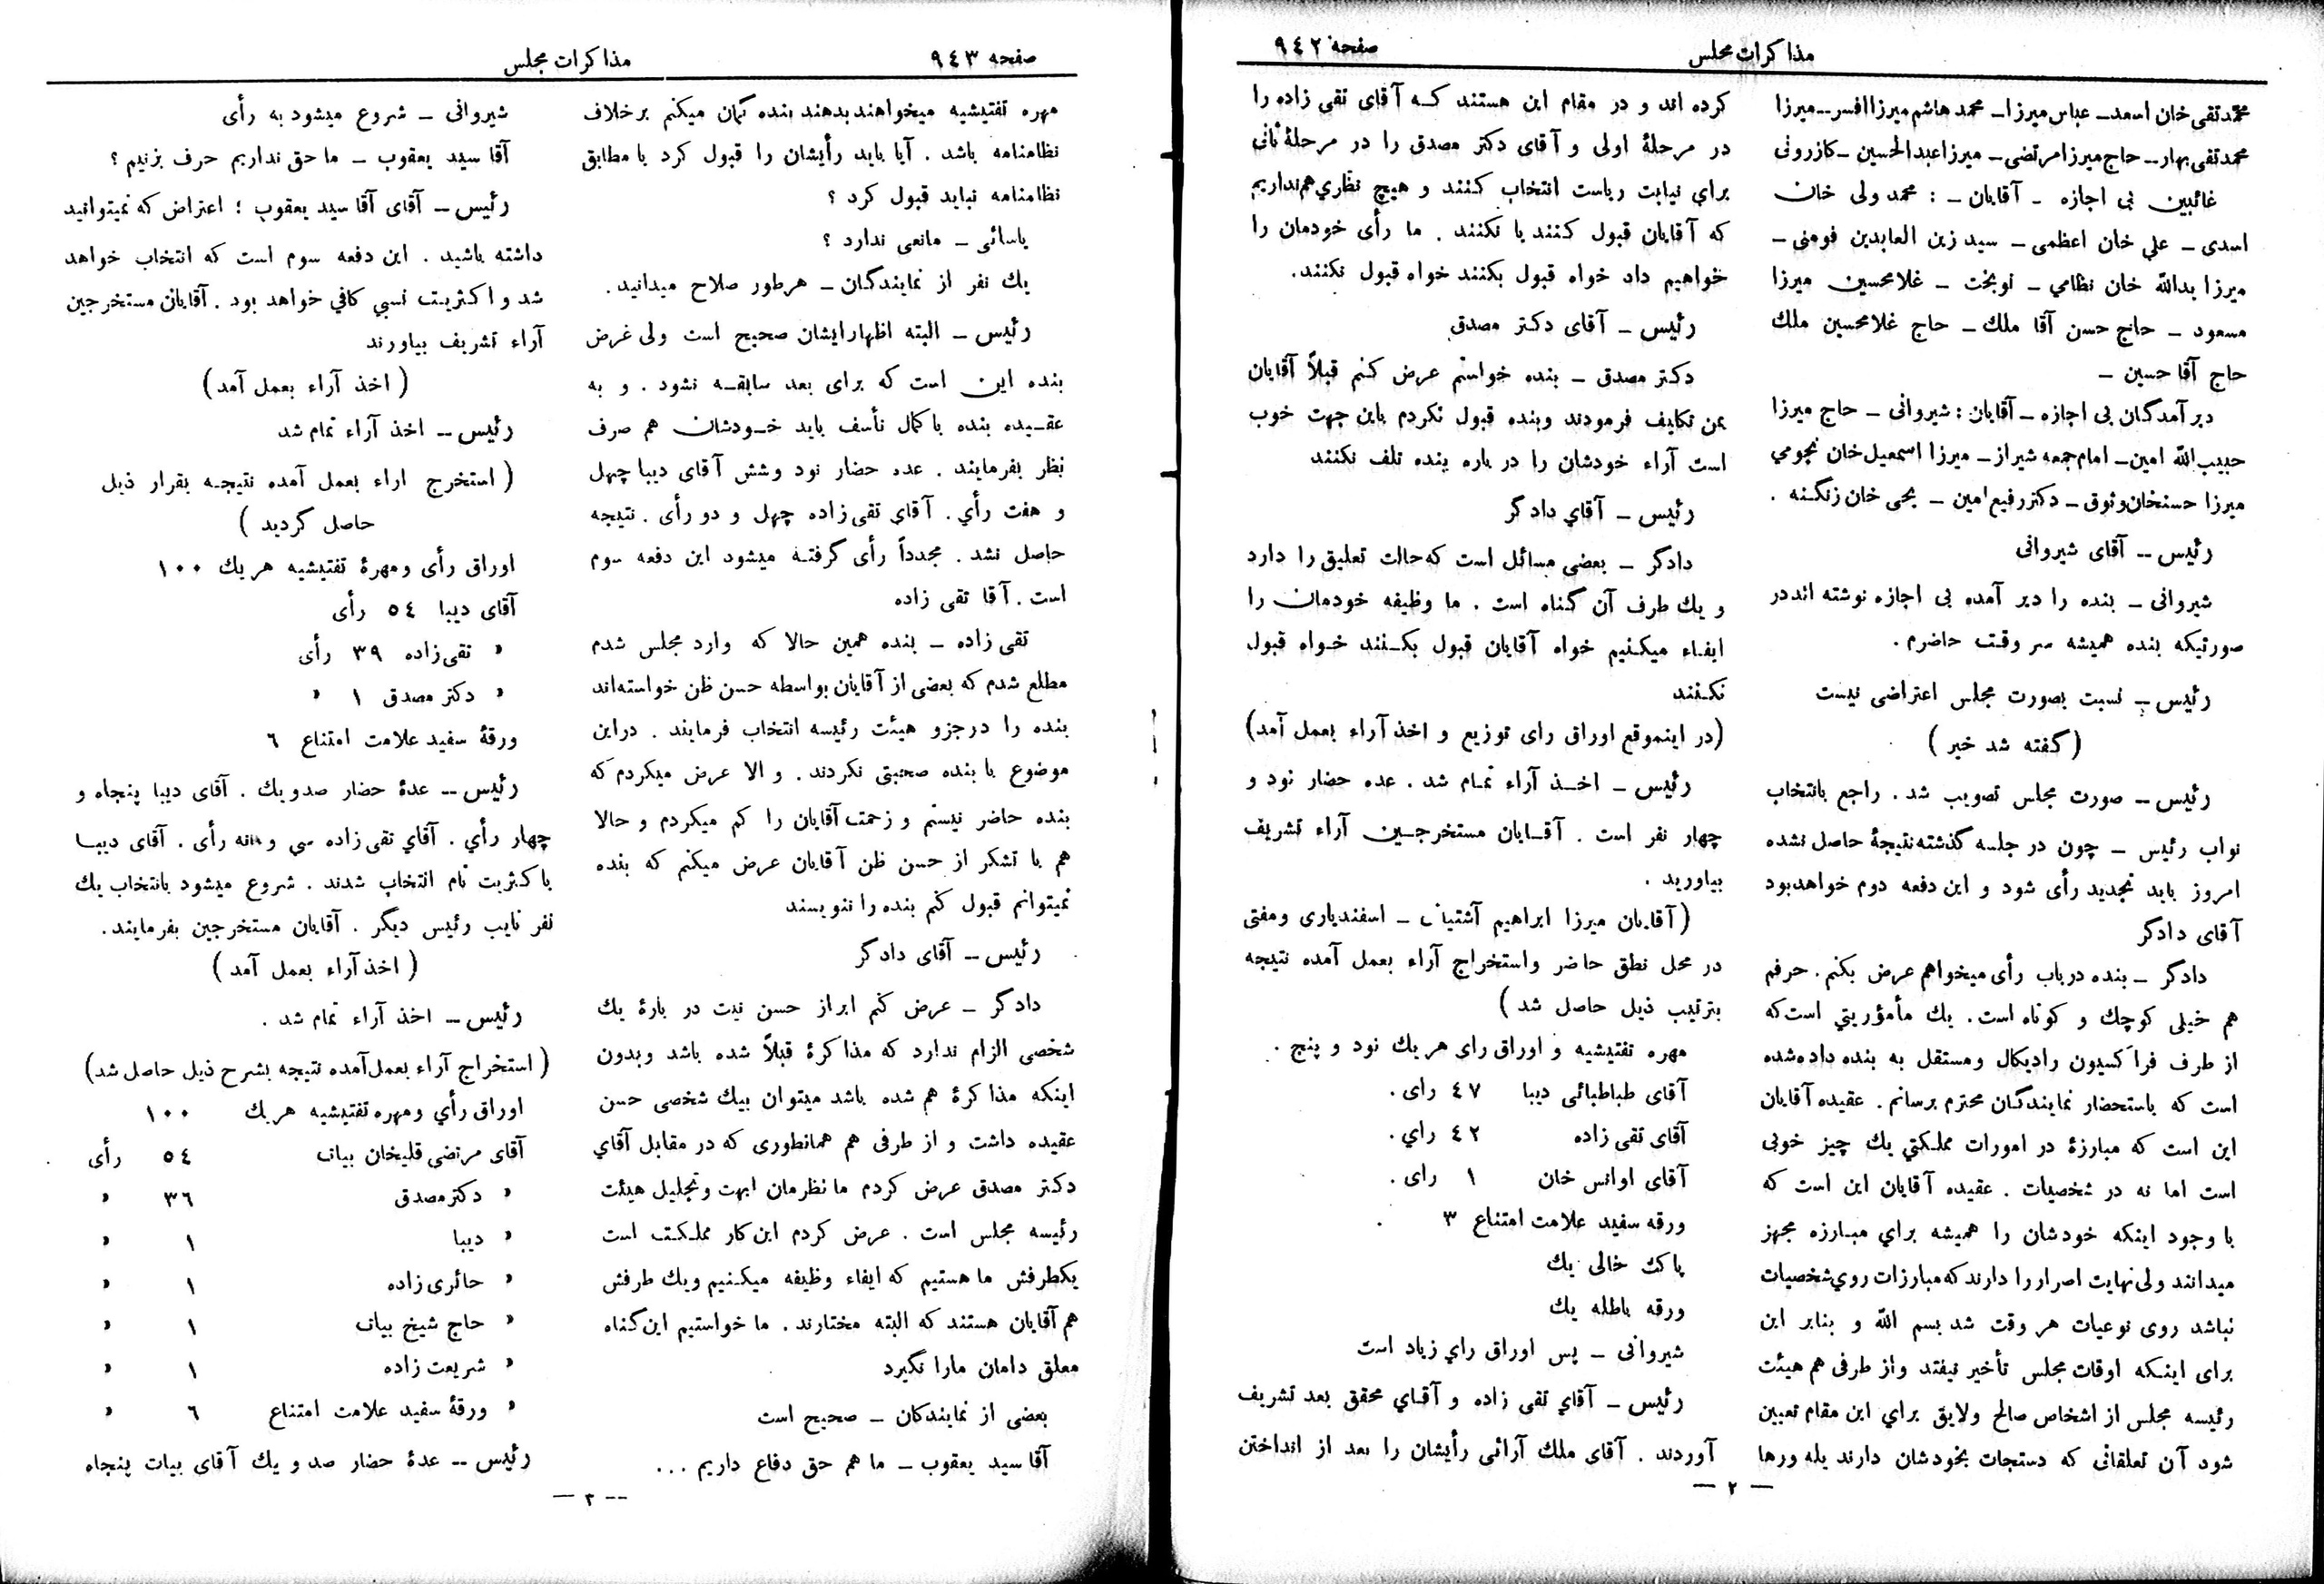 صفحه ۹٤۲
مذاکرات مجلس
محمد تقی خان اسعد ــ عباس میرزا ــ محمد هاشم میرزا افسر ــ میرزا
محمد تقی بهار ــ حاج میرزا مرتضی ــ میرزا عبدالحسین ــ کازرونی
غائبین بی اجازه ــ آقایان ــ : محمد ولی خان
اسدی ــ علی خان اعظمی ــ سید زین العابدین فومنی ــ
میرزا یدالله خان نظامی ــ نوبخت ــ غلامحسین میرزا
مسعود ــ حاج حسن آقا ملك ــ حاج غلامحسین ملك
حاج آقا حسین ــ
دیر آمدگان بی اجازه ــ آقایان : شیروانی ــ حاج میرزا
حبیب الله امین ــ امام جمعه شیراز ــ میرزا اسمعیل خان نجومي
میرزا حسنخان وثوق ــ دکتر رفیع امین ــ یحی خان زنگنه .
رئیس ــ آقای شیروانی
شیروانی ــ بنده را دیر آمده بی اجازه نوشته اند در
صورتیکه بنده همیشه سر وقت حاضرم .
رئیس ــ نسبت بصورت مجلس اعتراضی نیست
( گفته شد خیر )
رئیس ــ صورت مجلس تصویب شد . راجع بانتخاب
نواب رئیس ــ چون در جلسه گذشته نتیجهٔ حاصل نشده
امروز باید تجدید رأی شود و این دفعه دوم خواهد بود
آقای دادگر
دادگر ــ بنده در باب رأی میخواهم عرض بکنم . حرفم
هم خیلی کوچك و کوتاه است . یك مأموریتي است که
از طرف فراکسیون رادیکال و مستقل به بنده داده شده
است که باستحضار نمایندگان محترم برسانم . عقیده آقایان
این است که مبارزهٔ در امورات مملکتي یك چیز خوبی
است اما نه در شخصیات . عقیده آقایان این است که
با وجود اینکه خودشان را همیشه برای مبارزه مجهز
میدانند ولی نهایت اصرار را دارند که مبارزات روي شخصیات
نباشد روی نوعیات هر وقت شد بسم الله و بنابر این
برای اینکه اوقات مجلس تأخیر نیفتد و از طرفی هم هیئت
رئیسه مجلس از اشخاص صالح و لایق براي این مقام تعیین
شود آن تعلقاتی که دستجات بخودشان دارند یله و رها
کرده اند و در مقام این هستند که آقای تقی زاده را
در مرحلهٔ اولی و آقای دکتر مصدق را در مرحلهٔ ثانی
برای نیابت ریاست انتخاب کنند و هیچ نظري هم نداریم
که آقایان قبول کنند یا نکنند . ما رأی خودمان را
خواهیم داد خواه قبول بکنند خواه قبول نکنند .
رئیس ــ آقای دکتر مصدق
دکتر مصدق ــ بنده خواستم عرض کنم قبلاً آقایان
بمن تکلیف فرمودند و بنده قبول نکردم باین جهت خوب
است آراء خودشان را در باره بنده تلف نکنند
رئیس ــ آقاي دادگر
دادگر ــ بعضی مسائل است که حالت تعلیق را دارد
و یك طرف آن گناه است . ما وظیفه خودمان را
ایفاء میکنیم خواه آقایان قبول بکنند خواه قبول
نکنند
(در اینموقع اوراق رای توزیع و اخذ آراء بعمل آمد)
رئیس ــ اخذ آراء تمام شد . عده حضار نود و
چهار نفر است . آقایان مستخرجین آراء تشریف
بیاورید .
(آقایان میرزا ابراهیم آشتیانی ــ اسفندیاری و مفتی
در محل نطق حاضر و استخراج آراء بعمل آمده نتیجه
بترتیب ذیل حاصل شد )
مهره تفتیشیه و اوراق رای هر یك نود و پنج .
آقای طباطبائی دیبا ٤۷ رای .
آقای تقی زاده ٤۲ راي .
آقای اوانس خان ۱ رای .
ورقه سفید علامت امتناع ۳
پاکت خالی یك
ورقه باطله یك
شیروانی ــ پس اوراق راي زیاد است
رئیس ــ آقاي تقی زاده و آقاي محقق بعد تشریف
آوردند . آقای ملك آرائی رأیشان را بعد از انداختن
— ۲ —
صفحه ۹٤۳
مذاکرات مجلس
مهره تفتیشیه میخواهند بدهند بنده گمان میکنم بر خلاف
نظامنامه باشد . آیا باید رأیشان را قبول کرد یا مطابق
نظامنامه نباید قبول کرد ؟
یاسائی ــ مانعی ندارد ؟
یك نفر از نمایندگان ــ هر طور صلاح میدانید .
رئیس ــ البته اظهار ایشان صحیح است ولی غرض
بنده این است که برای بعد سابقه نشود . و به
عقیده بنده با کمال تأسف باید خودشان هم صرف
نظر بفرمایند . عده حضار نود و شش آقای دیبا چهل
و هفت رأي . آقاي تقی زاده چهل و دو رأی . نتیجه
حاصل نشد . مجدداً رأی گرفته میشود این دفعه سوم
است . آقا تقی زاده
تقی زاده ــ بنده همین حالا که وارد مجلس شدم
مطلع شدم که بعضی از آقایان بواسطه حسن ظن خواسته‌اند
بنده را در جزو هیئت رئیسه انتخاب فرمایند . در این
موضوع با بنده صحبتی نکردند . و الا عرض میکردم که
بنده حاضر نیستم و زحمت آقایان را کم میکردم و حالا
هم با تشکر از حسن ظن آقایان عرض میکنم که بنده
نمیتوانم قبول کنم بنده را ننویسند
رئیس ــ آقای دادگر
دادگر ــ عرض کنم ابراز حسن نیت در بارهٔ یك
شخصی الزام ندارد که مذاکرهٔ قبلاً شده باشد و بدون
اینکه مذاکرهٔ هم شده باشد میتوان بیك شخصی حسن
عقیده داشت و از طرفی هم همانطوری که در مقابل آقاي
دکتر مصدق عرض کردم ما نظرمان ابهت و تجلیل هیئت
رئیسه مجلس است . عرض کردم این کار مملکت است
یکطرفش ما هستیم که ایفاء وظیفه میکنیم و یك طرفش
هم آقایان هستند که البته مختارند . ما خواستیم این گناه
معلق دامان ما را نگیرد
بعضی از نمایندکان ــ صحیح است
آقا سید یعقوب ــ ما هم حق دفاع داریم ...
شیروانی ــ شروع میشود به رأی
آقا سید یعقوب ــ ما حق نداریم حرف بزنیم ؟
رئیس ــ آقای آقا سید یعقوب ؛ اعتراض که نمیتوانید
داشته باشید . این دفعه سوم است که انتخاب خواهد
شد و اکثریت نسبي کافي خواهد بود . آقایان مستخرجین
آراء تشریف بیاورند
( اخذ آراء بعمل آمد )
رئیس ــ اخذ آراء تمام شد
( استخرج اراء بعمل آمده نتیجه بقرار ذیل
حاصل گردید )
اوراق رأی و مهرهٔ تفتیشیه هر یك ۱۰۰
آقای دیبا ٥٤ رأی
« تقی زاده ۳۹ رأی
« دکتر مصدق ۱ «
ورقهٔ سفید علامت امتناع ٦
رئیس ــ عدهٔ حضار صد و یك . آقای دیبا پنجاه و
چهار رأي . آقاي تقی زاده سي و نه رأی . آقای دیبا
با کثریت تام انتخاب شدند . شروع میشود بانتخاب یك
نفر نایب رئیس دیگر . آقایان مستخرجین بفرمایند .
( اخذ آراء بعمل آمد )
رئیس ــ اخذ آراء تمام شد .
( استخراج آراء بعمل آمده نتیجه بشرح ذیل حاصل شد)
اوراق رأي و مهره تفتیشیه هر یك ۱۰۰
آقای مرتضی قلیخان بیات ٥٤ رأی
« دکتر مصدق ۳٦ «
« دیبا ۱ «
« حائری زاده ۱ «
« حاج شیخ بیات ۱ «
« شریعت زاده ۱ «
« ورقهٔ سفید علامت امتناع ٦ «
رئیس ــ عدهٔ حضار صد و یك آقای بیات پنجاه
— ۳ —